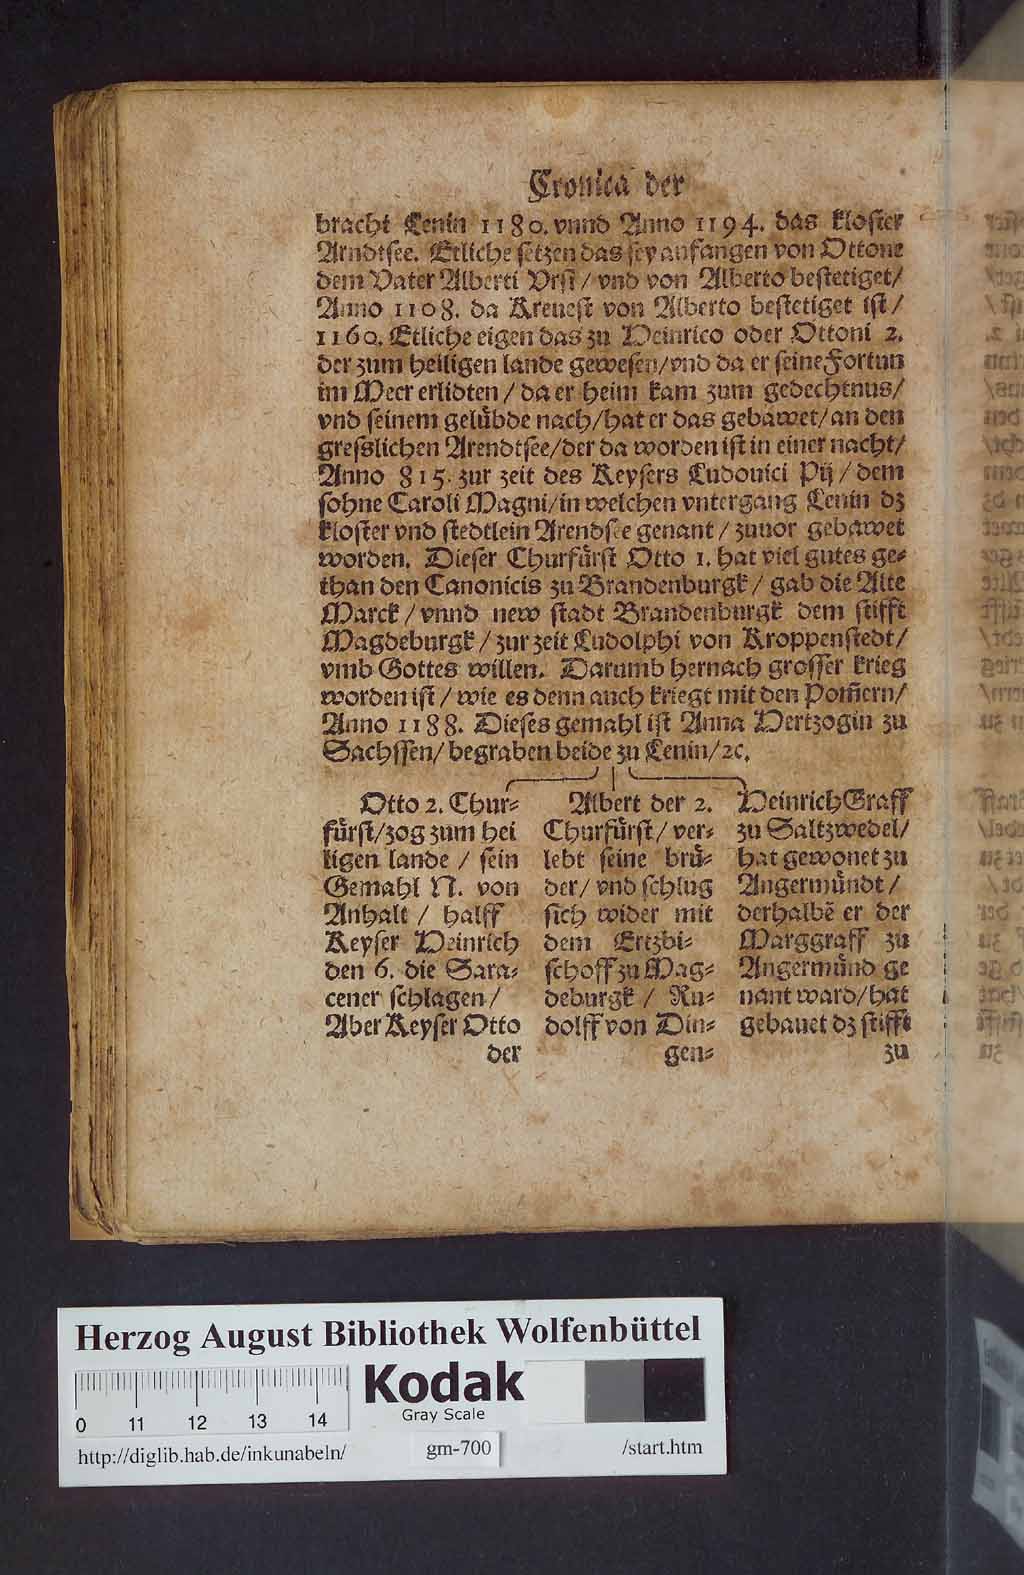 Cronica der
bracht Lenin 1180. vnnd Anno 1194. das kloster
Arndtsee. Etliche setzen das sey anfangen von Ottone
dem Vater Alberti Vrsi / vnd von Alberto bestetiget /
Anno 1108. da Kreuest von Alberto bestetiget ist /
1160. Etliche eigen das zu Heinrico oder Ottoni 2.
der zum heiligen lande gewesen / vnd da er seine Fortun
im Meer erlidten / da er heim kam zum gedechtnus /
vnd seinem gelübde nach / hat er das gebawet / an den
gresslichen Arendtsee / der da worden ist in einer nacht /
Anno 815. zur zeit des Keysers Ludouici Pij / dem
sohne Caroli Magni / in welchen vntergang Lenin dz
kloster vnd stedtlein Arendsee genant / zuuor gebawet
worden. Dieser Churfürst Otto 1. hat viel gutes ge-
than den Canonicis zu Brandenburgk / gab die Alte
Marck / vnnd new stadt Brandenburgk dem stifft
Magdeburgk / zur zeit Ludolphi von Kroppenstedt /
vmb Gottes willen. Darumb hernach grosser krieg
worden ist / wie es denn auch kriegt mit den Pom̃ern /
Anno 1188. Dieses gemahl ist Anna Hertzogin zu
Sachssen / begraben beide zu Lenin / ꝛc.
Otto 2. Chur-
fürst / zog zum hei
ligen lande / sein
Gemahl N. von
Anhalt / halff
Keyser Heinrich
den 6. die Sara-
cener schlagen /
Aber Keyser Otto
der
Albert der 2.
Churfürst / ver-
lebt seine brü-
der / vnd schlug
sich wider mit
dem Ertzbi-
schoff zu Mag-
deburgk / Ru-
dolff von Din-
gen-
Heinrich Graff
zu Saltzwedel /
hat gewonet zu
Angermündt /
derhalbẽ er der
Marggraff zu
Angermünd ge
nant ward / hat
gebauet dz stifft
zu
Herzog August Bibliothek Wolfenbüttel
Kodak
Gray Scale
0 11 12 13 14
http://diglib.hab.de/inkunabeln/ gm-700 /start.htm